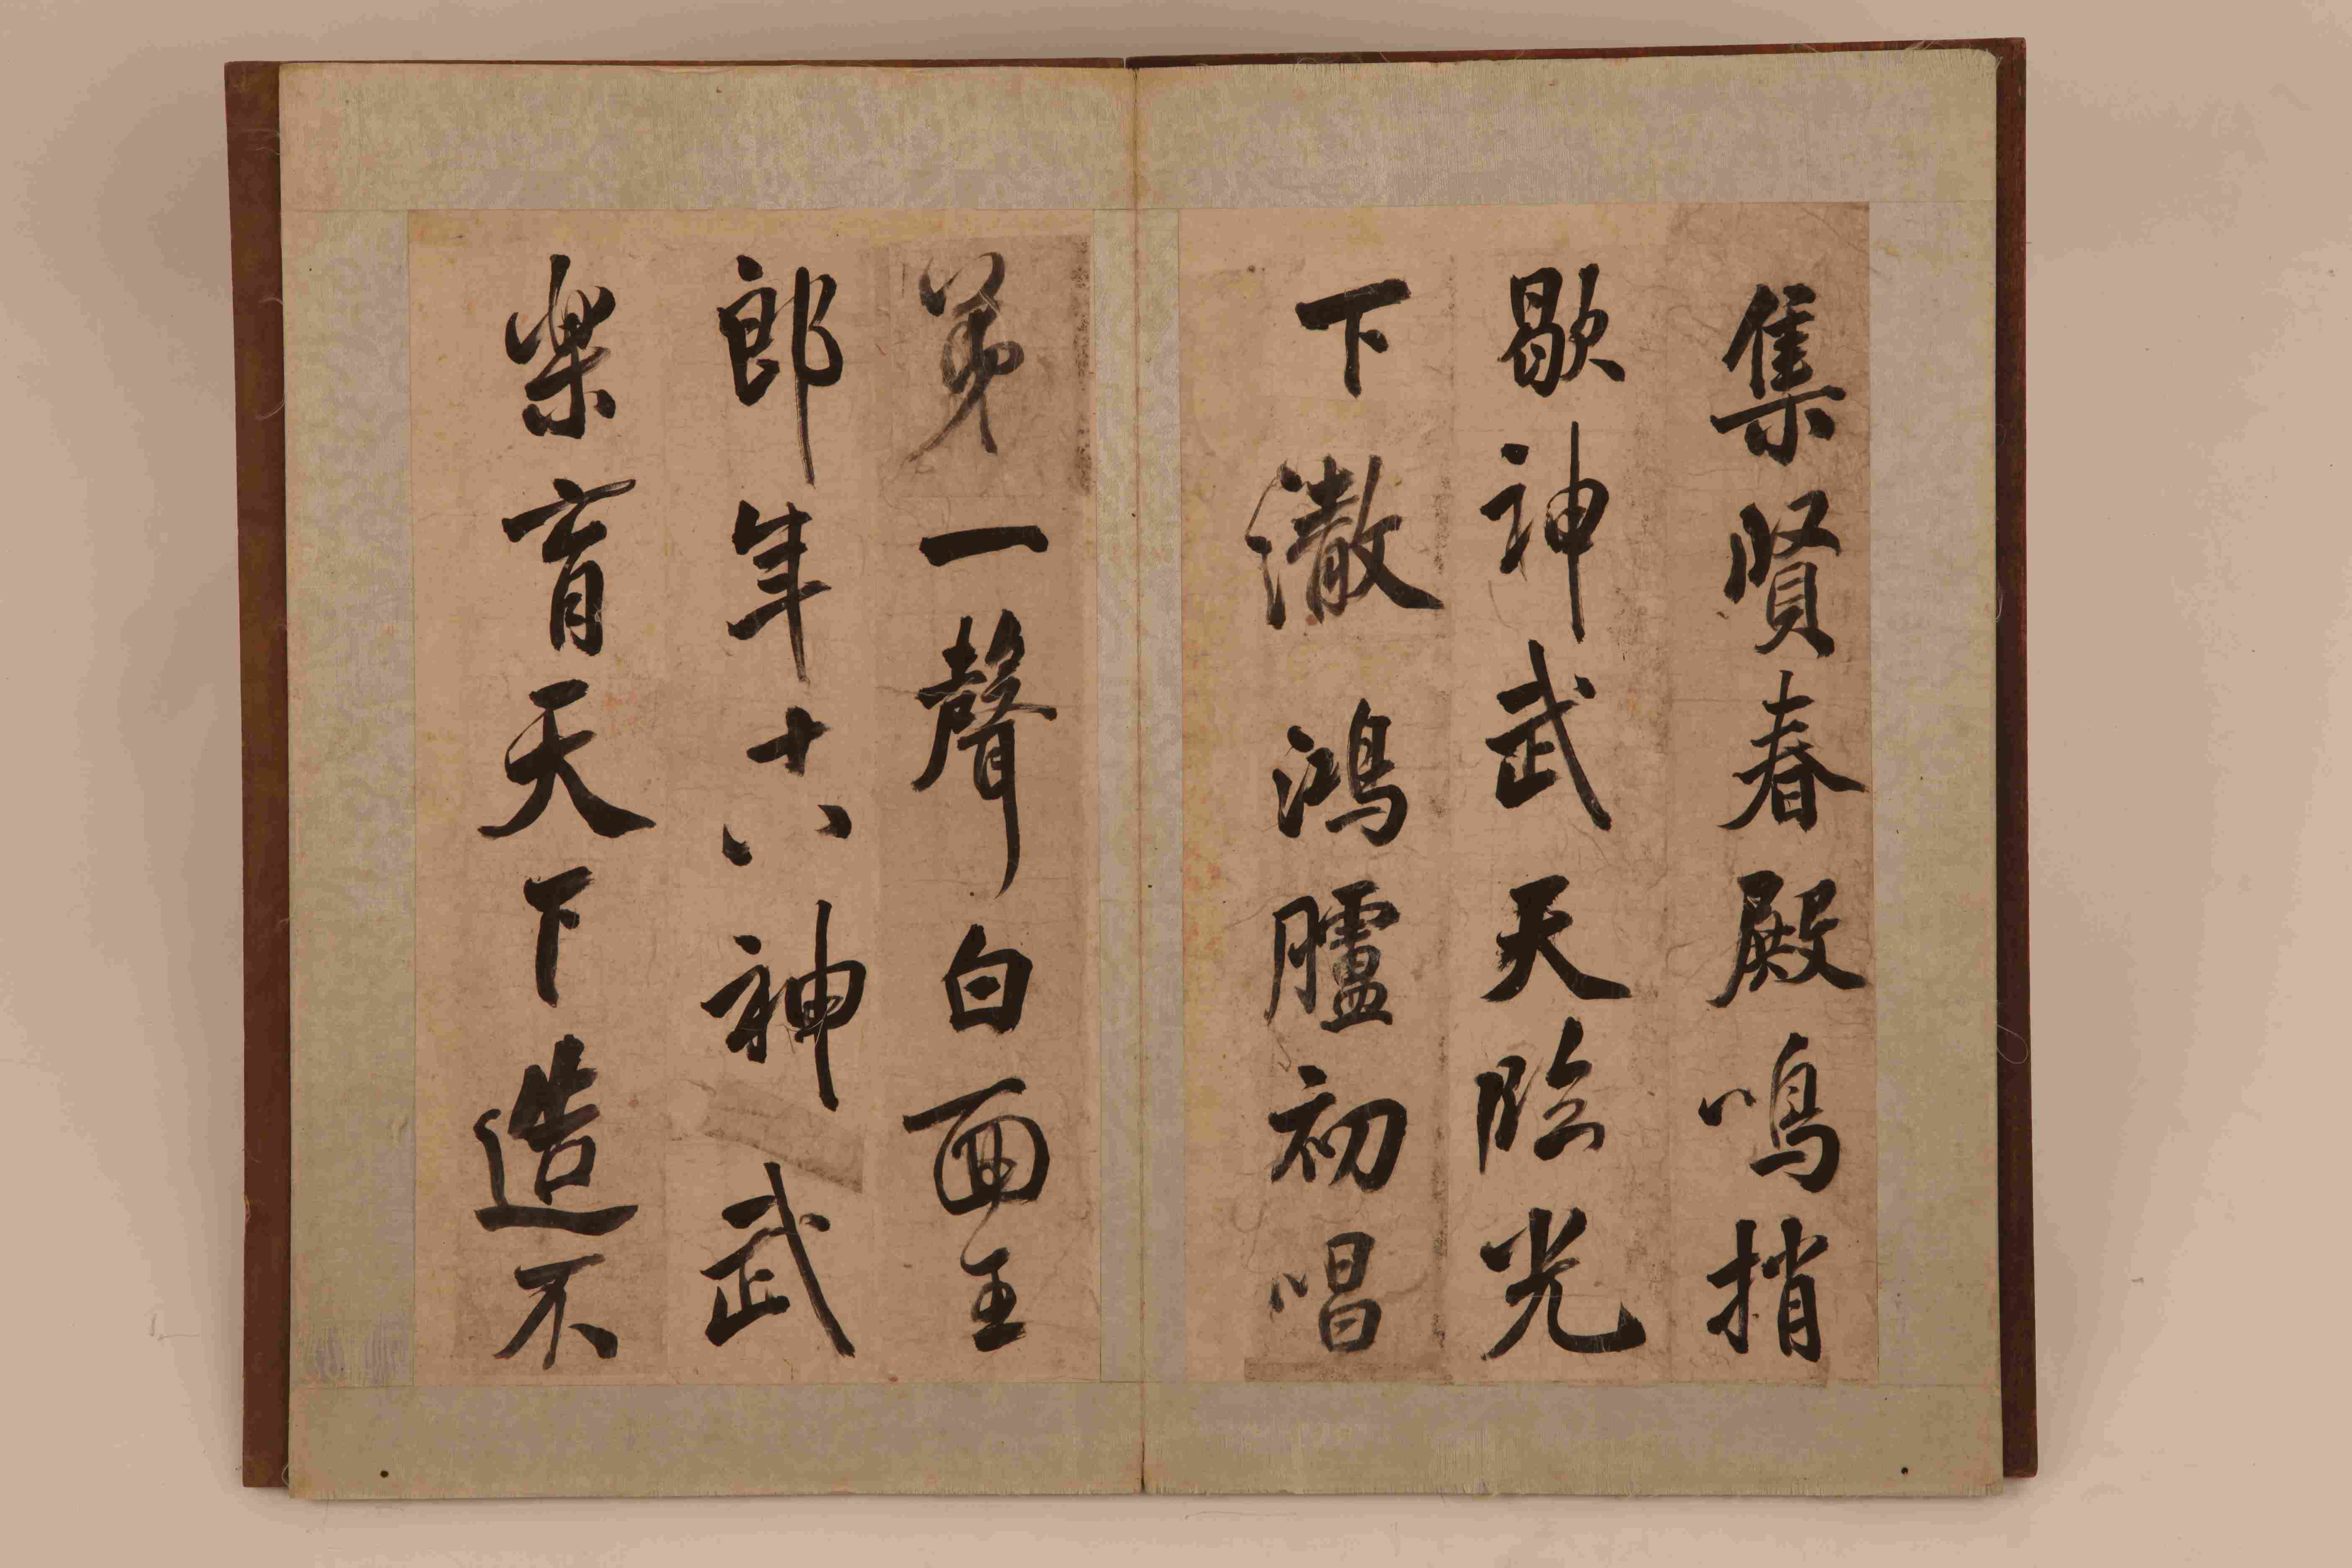 集賢春殿鳴捎
歇神武天臨光
下澈鴻臚初唱
第一聲白面王
郎年十八神武
樂育天下造不